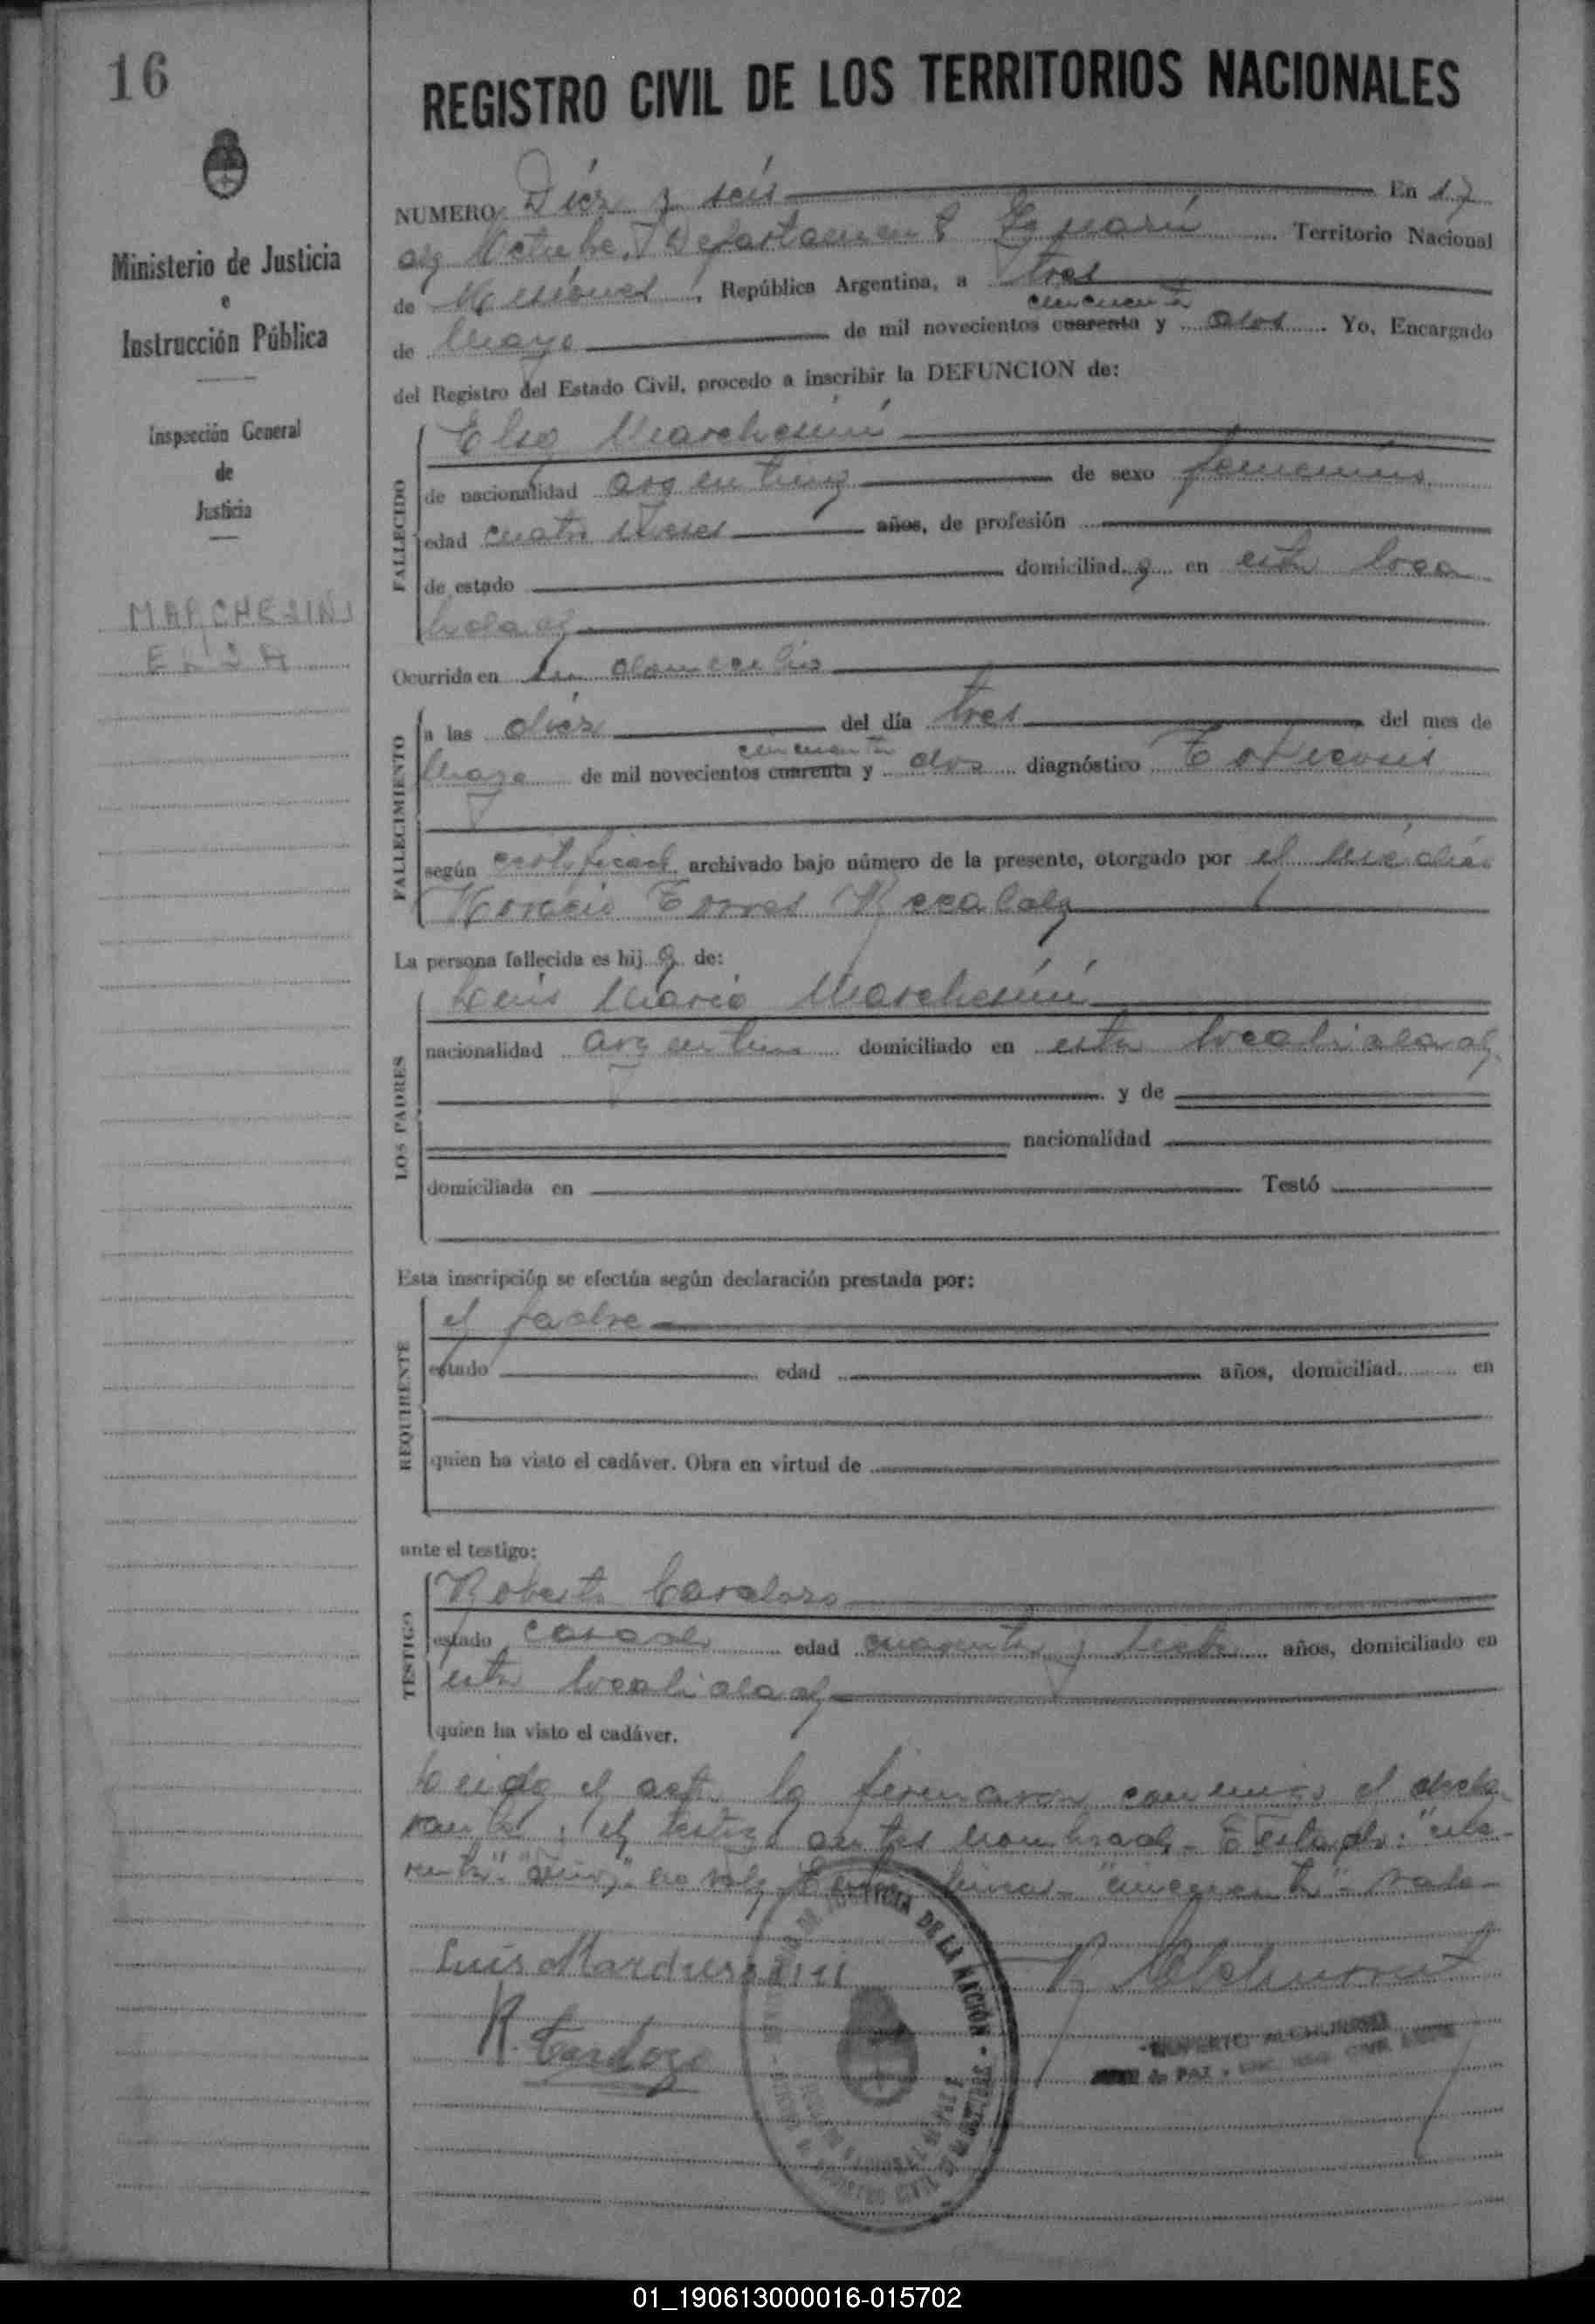 16
REGISTRO CIVIL DE LOS TERRITORIOS NACIONALES
Ministerio de Justicia
e
Instrucción Pública
Inspección General
de
Justicia
MARCHESINI
ELSA
NUMERO Diéz y seis En 17
de Octubre, Departamento Territorio Nacional
de Misiones, República Argentina, a tres
cincuenta
de Mayo de mil novecientos cuarenta y dos. Yo, Encargado
del Registro del Estado Civil, procedo a inscribir la DEFUNCION de:
FALLECIDO
Elsa Marchesíni
de nacionalidad argentina de sexo femenino
edad cuatro meses años, de profesión
de estado domiciliad a en esta loca
lidad
Ocurrida en su domicilio
FALLECIMIENTO
a las diéz del día tres del mes de
cincuenta
Mayo de mil novecientos cuarenta y dos diagnóstico Toxicosis
según certificado archivado bajo número de la presente, otorgado por el médico
Horacio Torres Recalde
La persona fallecida es hij a de:
LOS PADRES
Luis Mario Marchesíni
nacionalidad argentino domiciliado en esta localidad
y de
nacionalidad
domiciliada en Testó
Esta inscripción se efectúa según declaración prestada por:
REQUIRENTE
el padre
estado edad años, domiciliad en
quien ha visto el cadáver. Obra en virtud de
ante el testigo:
TESTIGO
Roberto Cardozo
estado casado edad cuarenta y siete años, domiciliado en
esta localidad
quien ha visto el cadáver.
Leida el acta la firmaron conmigo el decla-
rante y el testigo antes nombrado - Testado: "cua-
renta" "años" no vale Entre lineas - "cincuenta" - vale -
Luis Marchesini
R. Cardozo
MINISTERIO DE JUSTICIA DE LA NACIÓN
RUPERTO ALCHURRUT
JUEZ de PAZ - ENC. REG. CIVIL
01_190613000016-015702